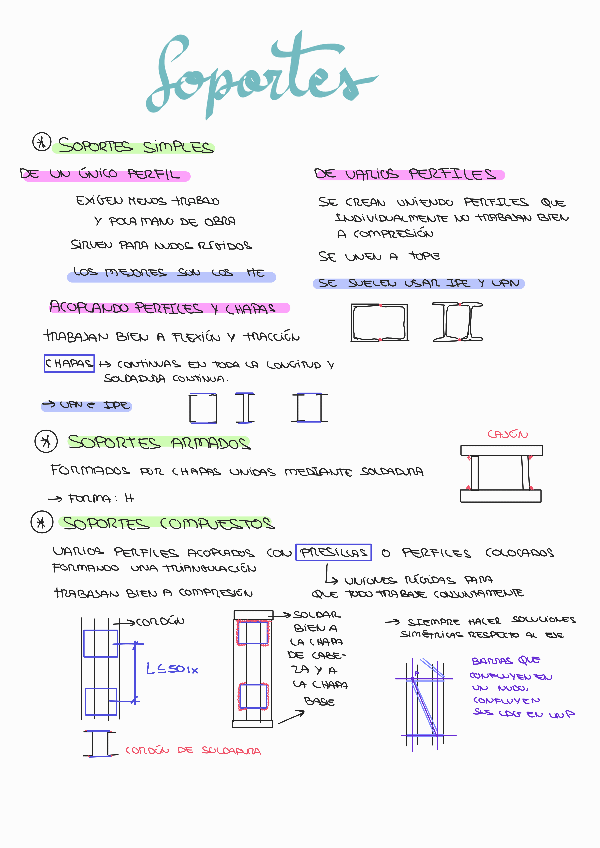 Soportes
* SOPORTES SIMPLES
DE UN ÚNICO PERFIL
EXIGEN MENOS TRABAJO
Y POCA MANO DE OBRA
SIRVEN PARA NUDOS RÍGIDOS
LOS MEJORES SON LOS HE
DE VARIOS PERFILES
SE CREAN UNIENDO PERFILES QUE
INDIVIDUALMENTE NO TRABAJAN BIEN
A COMPRESIÓN
SE UNEN A TOPE
SE SUELEN USAR IPE Y UPN
ACOPLANDO PERFILES Y CHAPAS
TRABAJAN BIEN A FLEXIÓN Y TRACCIÓN
CHAPAS → CONTINUAS EN TODA LA LONGITUD Y
SOLDADURA CONTINUA.
→ UPN e IPE
* SOPORTES ARMADOS
FORMADOS POR CHAPAS UNIDAS MEDIANTE SOLDADURA
→ FORMA: H
CAJÓN
* SOPORTES COMPUESTOS
VARIOS PERFILES ACOPLADOS CON PRESILLAS O PERFILES COLOCADOS
FORMANDO UNA TRIANGULACIÓN
→ UNIONES RÍGIDAS PARA
QUE TODO TRABAJE CONJUNTAMENTE
TRABAJAN BIEN A COMPRESIÓN
→ CORDÓN
L≤50ix
CORDÓN DE SOLDADURA
→ SOLDAR
BIEN A
LA CHAPA
DE CABE-
ZA Y A
LA CHAPA
BASE
→ SIEMPRE HACER SOLUCIONES
SIMÉTRICAS RESPECTO AL EJE
P
BARRAS QUE
CONFLUYEN EN
UN NUDO,
CONFLUYEN
SUS CDG EN UN P